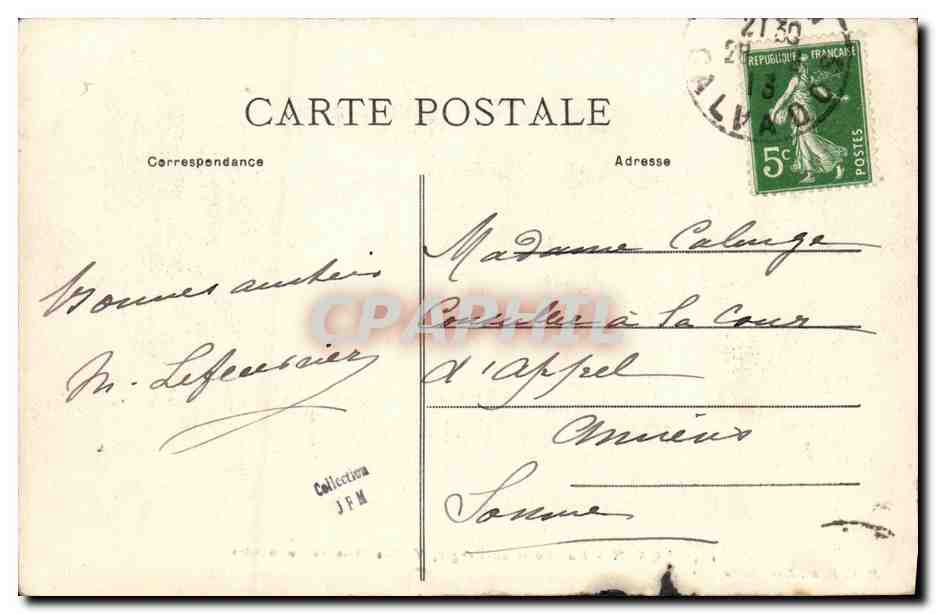 CARTE POSTALE
Correspondance
Adresse
21 30
28
13
CALVADOS
REPUBLIQUE FRANÇAISE
5c
POSTES
Bonnes amitiés
M. Lefeuvrier
Madame
à la Cour
d'Appel
Amiens
Somme
CPAPHIL
Collection
JFM